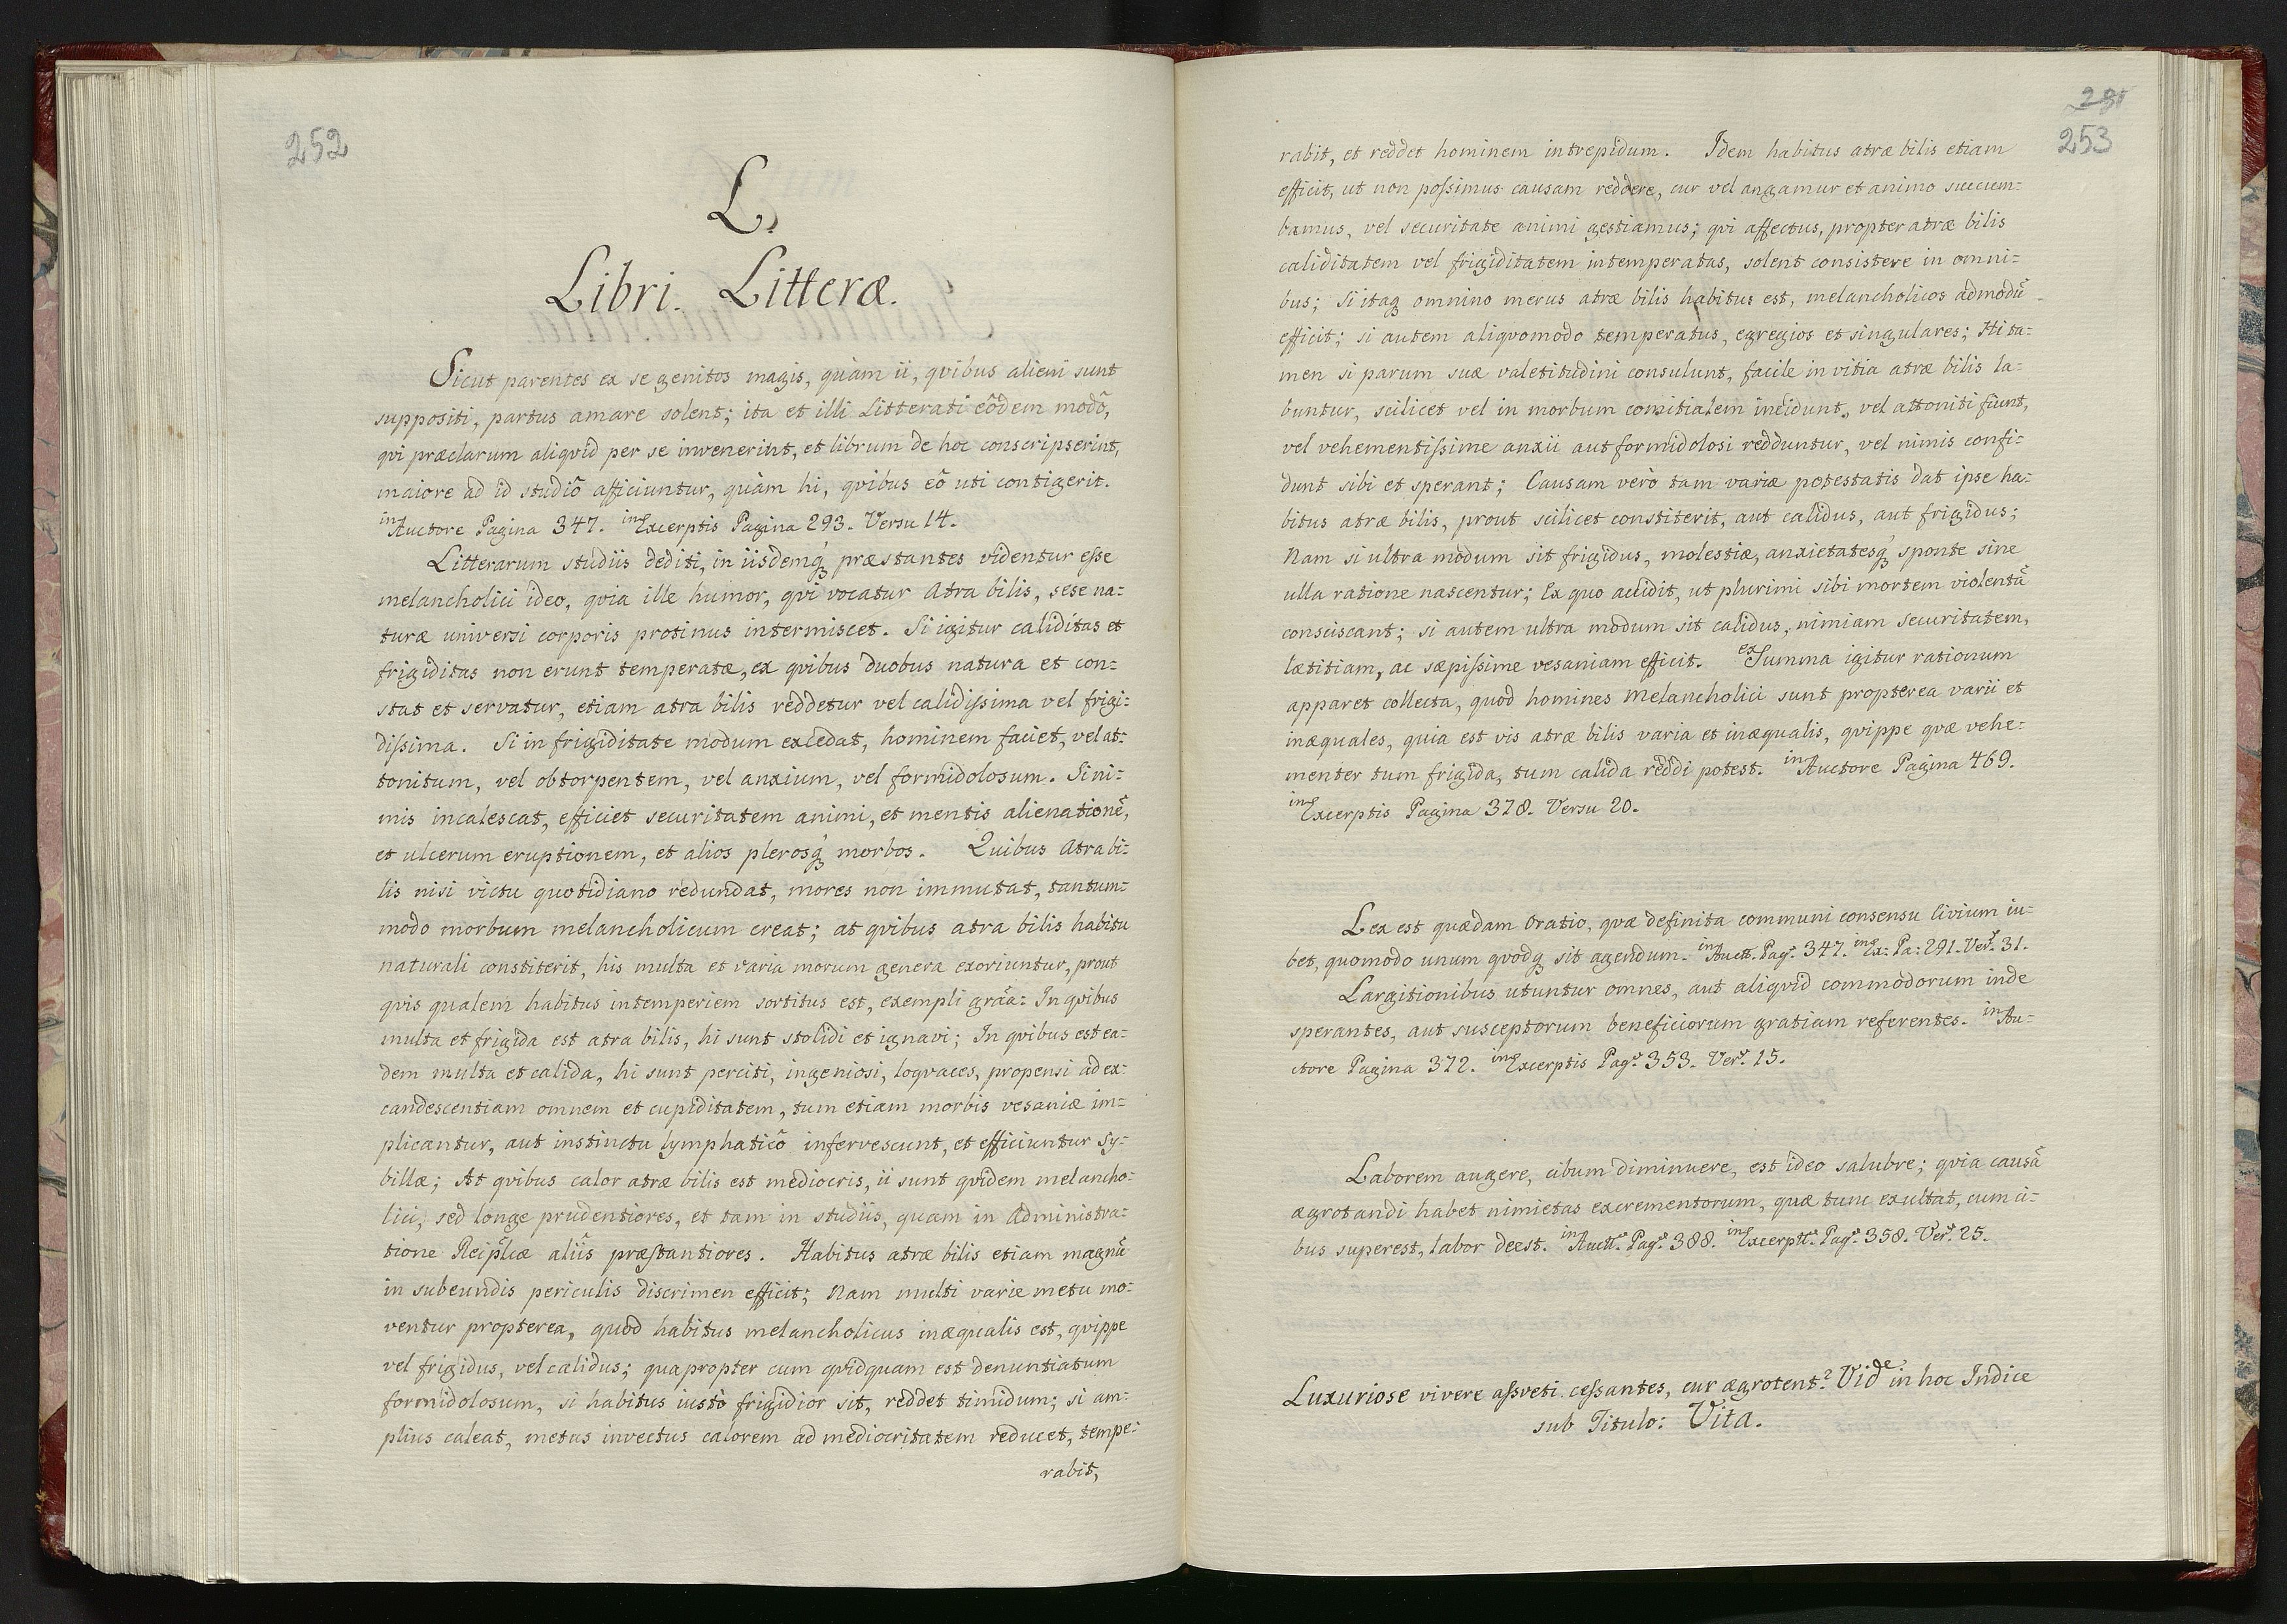 252
L.
Libri. Litteræ.
Sicut parentes ex se genitos magis, quàm ii, qvibus alieni sunt
suppositi, partus amare solent; ita et illi Litterati eôdem modô,
qvi præclarum aliqvid per se invenerint, et librum de hoc conscripserint,
maiore ad id studiô afficiuntur, quàm hi, qvibus eô uti contigerit.
in Auctore Pagina 347. in Excerptis Pagina 293. Versu 14.
Litterarum studiis dediti, in iisdemq́ȝ præstantes videntur eſse
melancholici ideo, qvia ille humor, qvi vocatur Atra bilis, sese na=
turæ universi corporis protinus intermiscet. Si igitur caliditas et
frigiditas non erunt temperatæ, ex qvibus duobus natura et con=
stat et servatur, etiam atra bilis reddetur vel calidiſsima vel frigi=
diſsima. Si in frigiditate modum excedat, hominem faciet, vel at=
tonitum, vel obtorpentem, vel anxium, vel formidolosum. Si ni=
mis incalescat, efficiet securitatem animi, et mentis alienationē,
et ulcerum eruptionem, et alios plerosq́ȝ morbos. Quibus Atra bi=
lis nisi victu quotidiano redundat, mores non immutat, tantum=
modo morbum melancholicum creat; at qvibus atra bilis habitu
naturali constiterit, his multa et varia morum genera exoriuntur, prout
qvis qualem habitus intemperiem sortitus est, exempli grãa: In qvibus
multa et frigida est atra bilis, hi sunt stolidi et ignavi; In qvibus est ea=
dem multa et calida, hi sunt perciti, ingeniosi, loqvaces, propensi ad ex=
candescentiam omnem et cupiditatem, tum etiam morbis vesaniæ im=
plicantur, aut instinctu lymphaticô infervescunt, et efficiuntur Sy=
billæ; At qvibus calor atræ bilis est mediocris, ii sunt qvidem melancho=
lici, sed longe prudentiores, et tam in studiis, quam in Administra=
tione Reip̃licæ aliis præstantiores. Habitus atræ bilis etiam magnū
in subeundis periculis discrimen efficit; Nam multi varie metu mo=
ventur propterea, quod habitus melancholicus inæqualis est, qvippe
vel frigidus, vel calidus; quapropter cum qvidquam est denuntiatum
formidolosum, si habitus iustò frigidior sit, reddet timidum; si am=
plius caleat, metus invectus calorem ad mediocritatem reducet, tempe=
rabit,
251
253
rabit, et reddet hominem intrepidum. Idem habitus atræ bilis etiam
efficit, ut non poſsimus causam reddere, cur vel angamur et animo succum=
bamus, vel securitate animi gestiamus; qvi affectus, propter atræ bilis
caliditatem vel frigiditatem intemperatas, solent consistere in omni=
bus; Si itaqȝ omnino merus atræ bilis habitus est, melancholicos admodū
efficit; si autem aliqvomodo temperatus, egregios et singulares; Hi ta=
men si parum suæ valetitudini consulunt, facile in vitia atræ bilis la=
buntur, scilicet vel in morbum comitialem incidunt, vel attoniti fiunt,
vel vehementiſsime anxii aut formidolosi redduntur, vel nimis confi=
dunt sibi et sperant; Causam verò tam variæ potestatis dat ipse ha=
bitus atræ bilis, prout scilicet constiterit, aut calidus, aut frigidus;
Nam si ultra modum sit frigidus, molestiæ, anxietatesq́ȝ sponte sine
ulla ratione nascentur; Ex quo accidit, ut plurimi sibi mortem violentā
consciscant; si autem ultra modum sit calidus, nimiam securitatem,
lætitiam, ac sæpiſsime vesaniam efficit. ex Summa igitur rationum
apparet collecta, quod homines Melancholici sunt propterea varii et
inæquales, quia est vis atræ bilis varia et inæqualis, qvippe qvæ vehe=
menter tum frigida, tum calida reddi potest. in Auctore Pagina 469.
in Excerptis Pagina 378. Versu 20.
Lex est quædam Oratio, qvæ definita communi consensu Civium iu=
bet, quomodo unum qvodqȝ sit agendum. in Auct. Pag. 347. in Ex: Pa: 291. Ver. 31.
Largitionibus utuntur omnes, aut aliqvid commodorum inde
sperantes, aut susceptorum beneficiorum gratiam referentes. in Au=
ctore Pagina 372. in Excerptis Pag. 353. Ver. 15.
Laborem augere, cibum diminuere, est ideo salubre; qvia causā
ægrotandi habet nimietas excrementorum, quæ tunc exultat, cum ci=
bus superest, labor deest. in Auct. Pag. 388. in Excerpt. Pag. 358. Ver. 25.
Luxuriose vivere aſsveti ceſsantes, cur ægrotent? Vide in hoc Indice
sub Titulo: Vita.